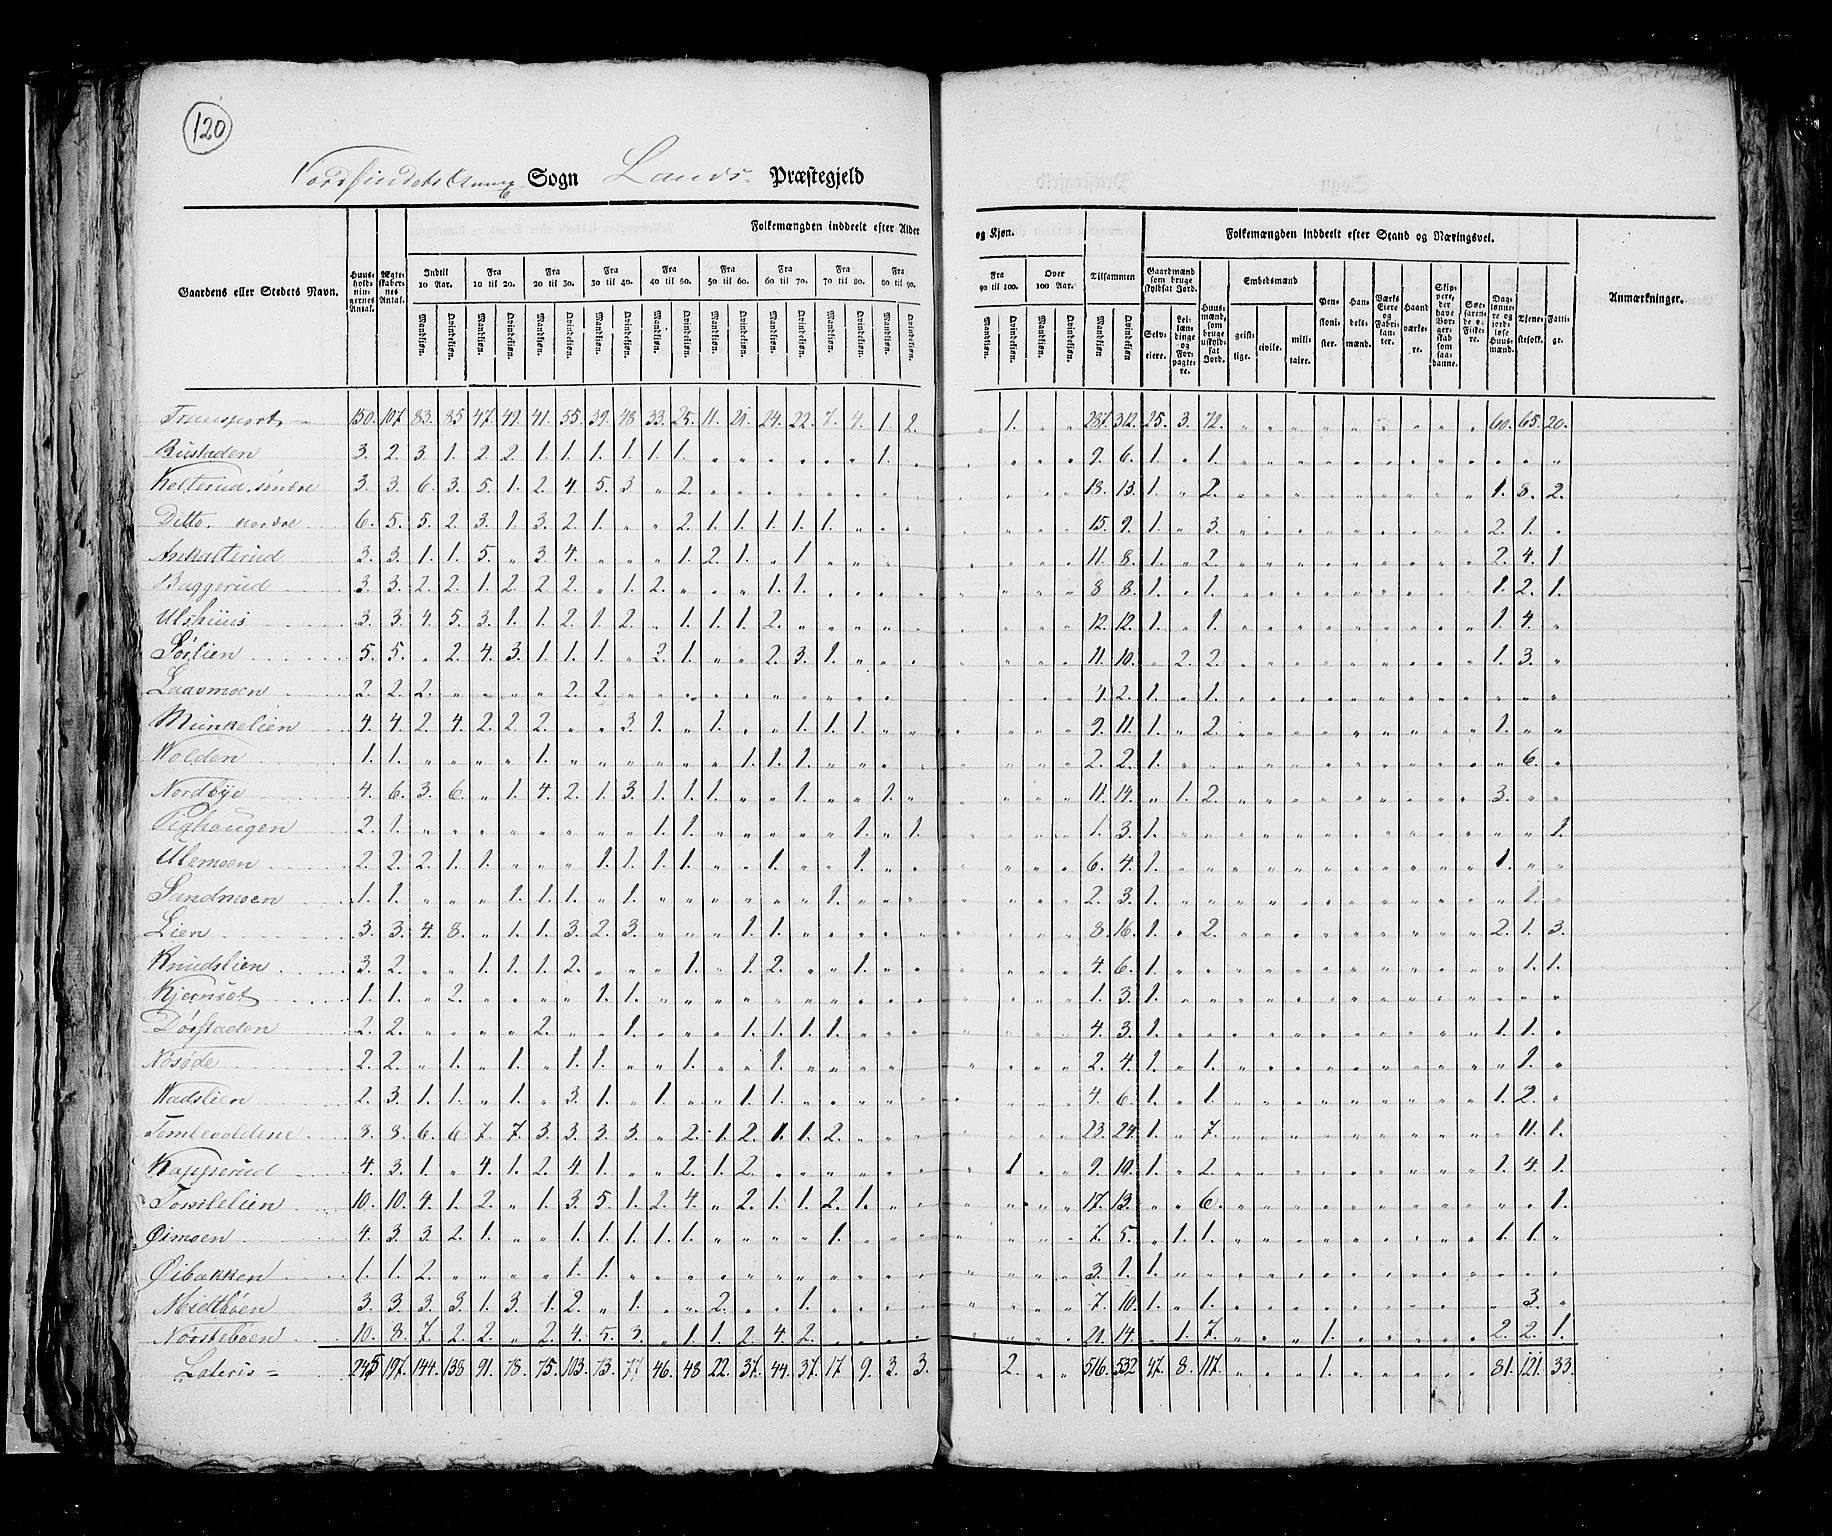 120
Sogn Lands Præstegjeld
Folkemængden inddeelt efter Alder og Kjøn.
Folkemængden inddeelt efter Stand og Næringsvei.
Gaardens eller Stedets Navn.
Huusholdningernes Antal.
Ægteskabernes Antal.
Indtil 10 Aar.
Fra 10 til 20.
Fra 20 til 30.
Fra 30 til 40.
Fra 40 til 50.
Fra 50 til 60.
Fra 60 til 70.
Fra 70 til 80.
Fra 80 til 90.
Fra 90 til 100.
Over 100 Aar.
Tilsammen
Mandkjøn. Qvindekjøn.
Gaardmænd som bruge skyldsat Jord.
Selveiere.
Leilændinge og Forpagtere.
Huusmænd, som bruge uskyldsat Jord.
Embedsmænd
geistlige.
civile.
militaire.
Pensionister.
Handelsmænd.
Værks Eiere og Fabrikanter.
Haandværkere.
Skippere, der have Borgerskab som saadanne.
Søefarende & Fiskere.
Daglønnere og jordløse Huusmænd.
Tjenestefolk.
Fattige.
Anmærkninger.
Transport 150. 107. 83. 85. 47. 49. 41. 55. 39. 48. 33. 25. 11. 21. 24. 22. 7. 4. 1. 2. 1. 287. 312. 25. 3. 72. 60. 65. 20.
Rustaden 3. 2. 3. 1. 2. 2. 1. 1. 1. 1. 1. 1. 1. 9. 6. 1. 1.
Kolterud, søndre 3. 3. 6. 3. 5. 1. 2. 4. 5. 3. 2. 18. 13. 1. 2. 1. 8. 2.
Ditto nordre 6. 5. 5. 2. 3. 1. 3. 2. 1. 2. 1. 1. 1. 1. 1. 15. 9. 1. 3. 2. 1.
3. 3. 1. 1. 5. 3. 4. 1. 2. 1. 1. 11. 8. 1. 2. 2. 4. 1
Baggerud 3. 3. 2. 2. 1. 2. 2. 2. 1. 2. 1. 1. 8 8. 1. 1. 1. 2. 1.
Ulshuus 3. 3. 4. 5. 3. 1. 1. 2. 1. 2. 1. 1. 1. 2. 12. 12. 1. 1. 1. 4.
Sørlien 5. 5. 2. 4. 3. 1. 1. 1. 2. 1. 2. 3. 1. 11. 10. 2. 2. 1. 3.
Laavmoen 2. 2. 2. 2. 2. 4 2. 1. 1.
Munkelien 4. 4. 2. 4. 2. 2. 2. 3. 1. 1. 1. 1. 1. 9. 11. 1. 2. 1.
Wolden 1. 1. 1. 1. 1. 1. 2. 2. 1. 6.
Nordbye 4. 6. 3. 6. 1. 4. 2. 1. 3. 1. 1. 1. 1. 1. 11. 14. 1. 2. 3.
2. 1. 1. 1. 1. 1. 1. 3. 1. 1.
Ulemoen 2. 2. 2. 1. 1. 1. 1. 1. 1. 1. 1. 6. 4. 1. 1.
Sandmoen 1. 1. 1. 1. 1. 1. 1. 2. 3. 1. 1.
Lien 3. 3. 4. 8. 1. 1. 3. 2. 3. 1. 1. 8. 16. 1. 2. 2. 1. 3.
Knudslien 3. 2. 1. 1. 1. 2. 1. 1. 2. 1. 4. 6. 1. 1. 1.
Kjernset 1. 1. 2. 1. 1. 1. 3. 1.
Dørstaden 2. 2. 2. 1. 1. 1. 1. 1. 4. 3. 1. 1. 1.
Nøsøde 2. 2. 1. 1. 1. 1. 1. 1. 2. 4. 1. 1. 1.
Wadslien 2. 3. 1. 1. 1. 3. 1. 1. 1. 1. 4. 6. 1. 1. 1. 2.
Tomlevoldene 8. 8. 6. 6 7. 7. 3. 3. 3. 3. 2. 1. 2. 1. 1. 2. 23. 24. 1. 7. 11. 1.
Kapperud 4. 3. 1. 4. 1. 2. 4. 1. 2. 1. 2. 1 9. 10. 1. 2. 1. 4. 1
Tomlelien 10. 10. 4. 1. 2. 1. 3. 5. 1. 2. 4. 2. 1. 1. 2. 1. 17. 13. 6. 1.
Øimoen 4. 3. 3. 2. 1. 1. 1. 1. 1. 1. 1. 7. 5. 1. 1. 1. 1.
Øibakken 1. 1. 2. 1. 1. 3. 1. 1.
Midtbøen 3. 3. 3. 3. 1. 3. 1. 2. 1. 2. 1. 7. 10. 1. 1. 3.
Nørstebøen 10. 8. 7. 2. 2. 2. 4. 5. 3. 1. 1. 2. 4. 2. 21. 14. 1. 7. 1. 2. 2. 1.
Lateris 245 197. 144. 138 91. 78. 75. 103. 73. 77. 46. 48 22. 37. 44. 37. 17 9. 3. 3. 2. 516. 532 47. 8. 117. 1. 81. 121. 33